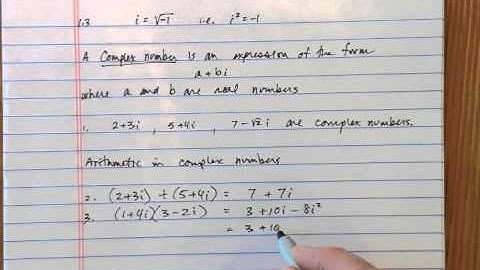 1.3 i = √-1 i.e. i² = -1
A Complex number is an expression of the form
a + bi
where a and b are real numbers
1. 2+3i , 5+4i , 7-√2 i are complex numbers.
Arithmetic in complex numbers
2. (2+3i) + (5+4i) = 7 + 7i
3. (1+4i)(3-2i) = 3 + 10i - 8i²
= 3 + 10